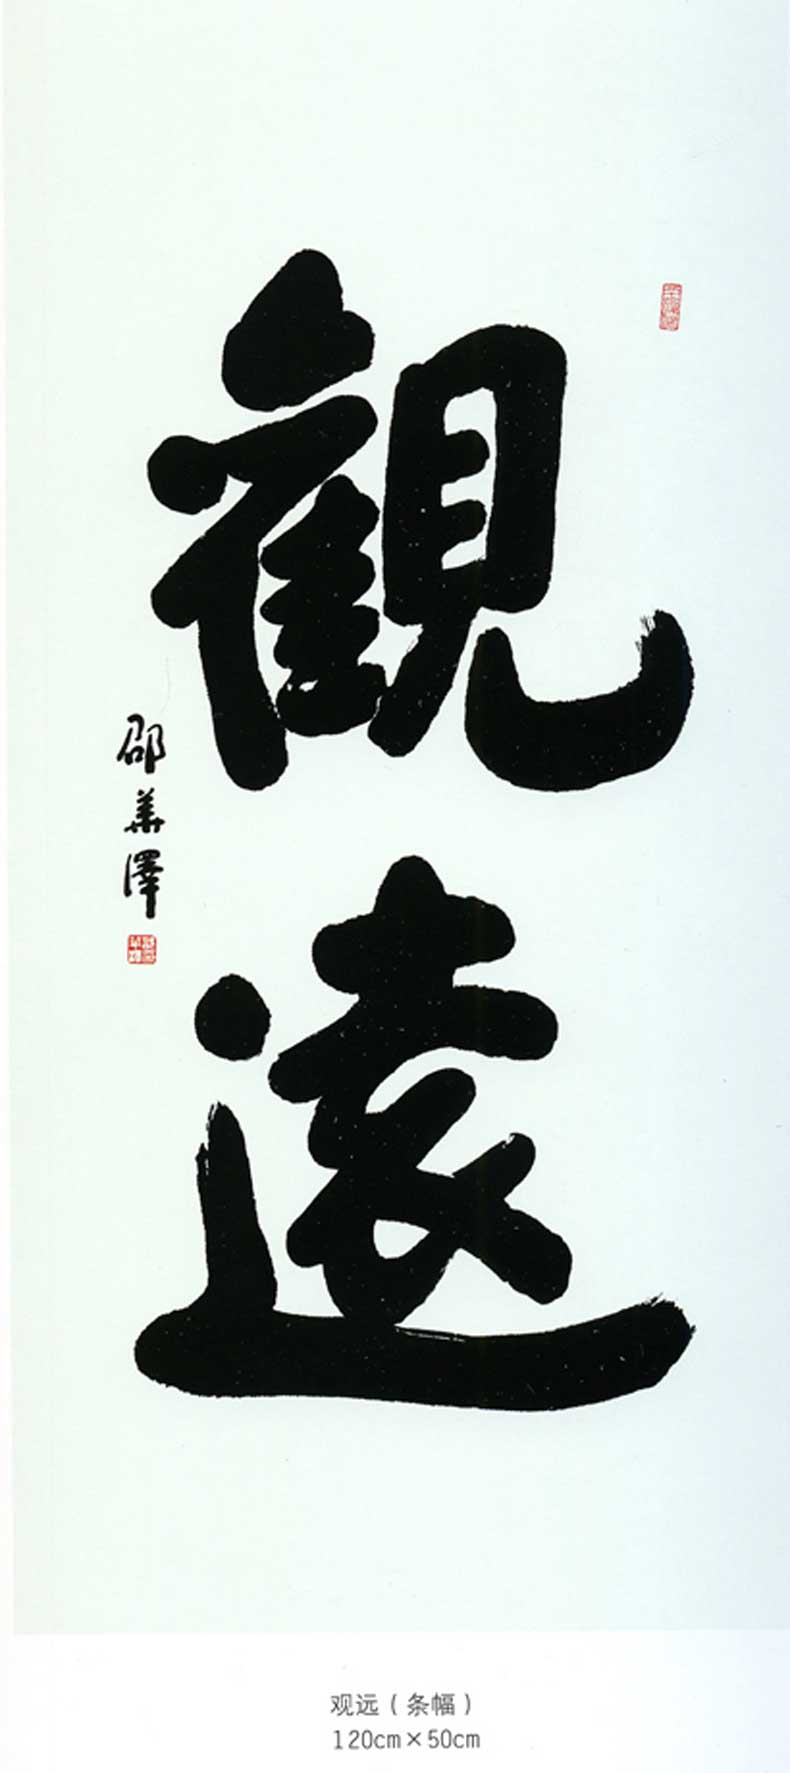 觀遠
邵華澤
观远（条幅）
120cm×50cm